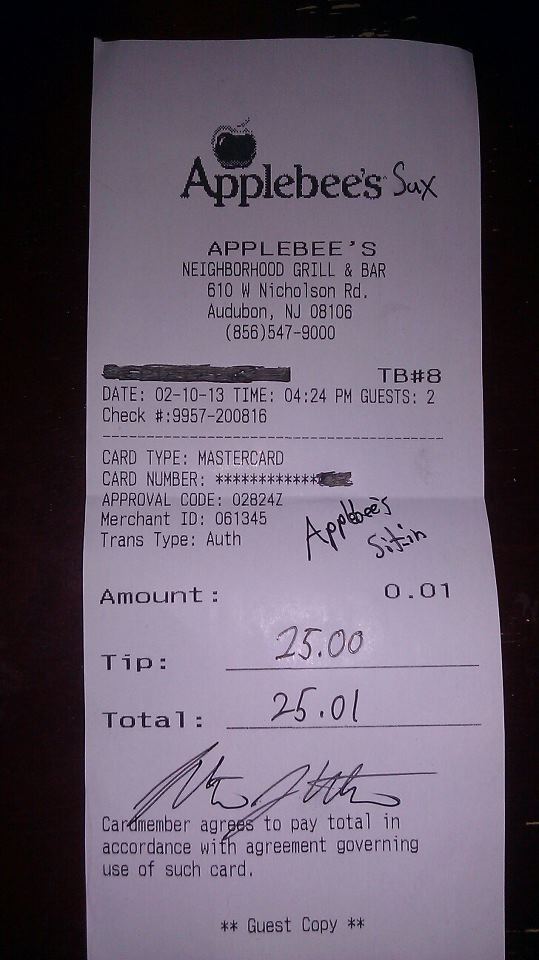 Applebee's Sux
APPLEBEE'S
NEIGHBORHOOD GRILL & BAR
610 W Nicholson Rd.
Audubon, NJ 08106
(856)547-9000
TB#8
DATE: 02-10-13 TIME: 04:24 PM GUESTS: 2
Check #:9957-200816
CARD TYPE: MASTERCARD
CARD NUMBER: ************
APPROVAL CODE: 02824Z
Merchant ID: 061345
Trans Type: Auth
Applebee's
Sit-in
Amount: 0.01
Tip: 25.00
Total: 25.01
Cardmember agrees to pay total in
accordance with agreement governing
use of such card.
** Guest Copy **